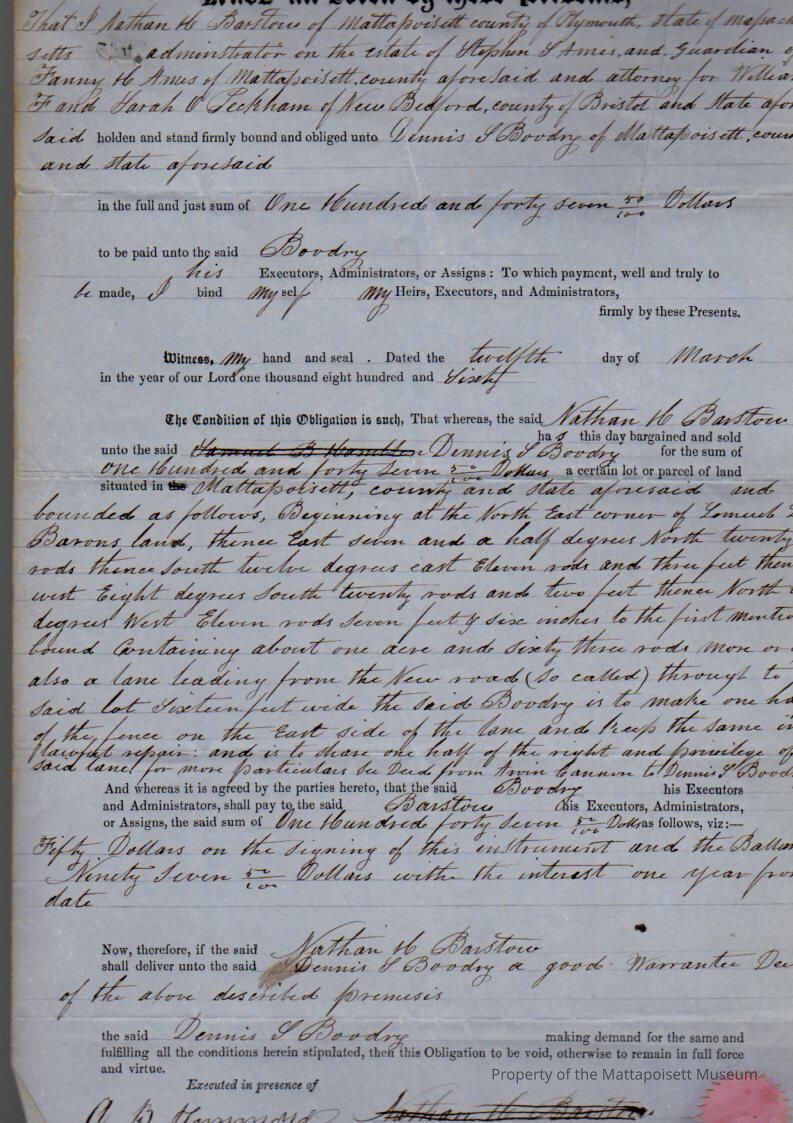 Know all Men by these Presents,
That I Nathan H Barstow of Mattapoisett county of Plymouth, State of Massach
setts administrator on the Estate of Stephen S Ames, and Guardian o
Fanny H Ames of Mattapoisett, county aforesaid and attorney for Willia
F and Sarah O Peckham of New Bedford, county of Bristol and State afor
said holden and stand firmly bound and obliged unto Dennis S Boodry of Mattapoisett, coun
and state aforesaid
in the full and just sum of One Hundred and forty seven 50/100 Dollars
to be paid unto the said Boodry
his Executors, Administrators, or Assigns: To which payment, well and truly to
be made, I bind my self my Heirs, Executors, and Administrators,
firmly by these Presents.
Witness, my hand and seal . Dated the twelfth day of March
in the year of our Lord one thousand eight hundred and Sixty
The Condition of this Obligation is such, That whereas, the said Nathan H Barstow
has this day bargained and sold
unto the said Samuel B Hamblin Dennis S Boodry for the sum of
One Hundred and forty Seven 50/100 Dollars a certain lot or parcel of land
situated in the Mattapoisett, county and state aforesaid and
bounded as follows, Beginning at the North East corner of Lemuel L
Barons land, thence East seven and a half degrees North twenty
rods thence South twelve degrees east Eleven rods and three feet then
west Eight degrees South twenty rods and two feet thence North
degrees West Eleven rods Seven feet & six inches to the first mentio
bound Containing about one acre and sixty three rods more or
also a lane leading from the New road (so called) through to
said lot Sixteen feet wide the said Boodry is to make one ha
of the fence on the East side of the lane and keep the same in
lawful repair: and is to share one half of the right and privilege of
said lane, for more particulars See Deed from Irvin Cannon to Dennis S Boodr
And whereas it is agreed by the parties hereto, that the said Boodry his Executors
and Administrators, shall pay to the said Barstow his Executors, Administrators,
or Assigns, the said sum of One Hundred forty Seven 50/100 Dolls as follows, viz:—
Fifty Dollars on the signing of this instrument and the Ballan
Ninety Seven 50/100 Dollars withe the interest one year from
date
Now, therefore, if the said Nathan H Barstow
shall deliver unto the said Dennis S Boodry a good Warrantee Dee
of the above described premesis
the said Dennis S Boodry making demand for the same and
fulfilling all the conditions herein stipulated, then this Obligation to be void, otherwise to remain in full force
and virtue.
Executed in presence of
Property of the Mattapoisett Museum
Nathan H Barstow